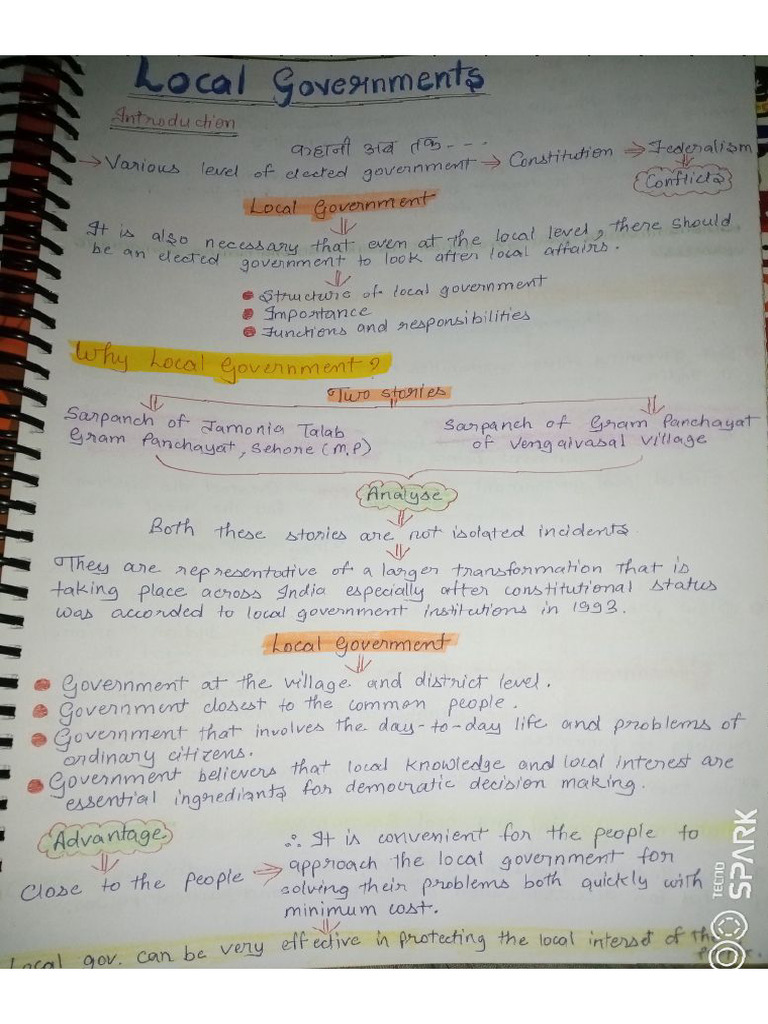 Local Governments
Introduction
कहानी अब तक---
→ Various level of elected government → Constitution ⇒ Federalism
Conflicts
Local Government
It is also necessary that even at the local level, there should
be an elected government to look after local affairs.
Structure of local government
Importance
Functions and responsibilities
Why Local Government?
Two stories
Sarpanch of Jamonia Talab
Gram Panchayat, Sehore (M.P)
Sarpanch of Gram Panchayat
of Vengaivasal village
Analyse
Both these stories are not isolated incidents
They are representative of a larger transformation that is
taking place across India especially after constitutional status
was accorded to local government institutions in 1993.
Local Goverment
Government at the village and district level.
Government closest to the common people.
Government that involves the day-to-day life and problems of
ordinary citizens.
Government believers that local knowledge and local interest are
essential ingrediants for democratic decision making.
Advantage
Close to the people ⇒
∴ It is convenient for the people to
approach the local government for
solving their problems both quickly with
minimum cost.
Local gov. can be very effective in protecting the local interset of the
TECNO
SPARK